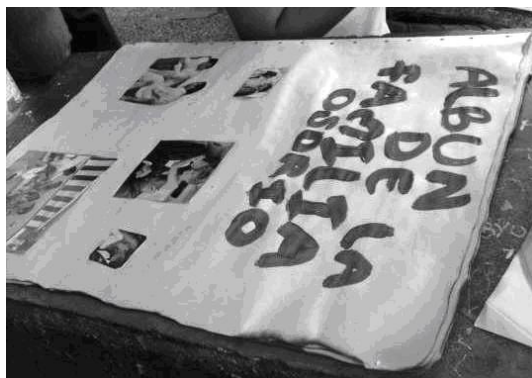 ALBUN
DE LA
FAMILIA
OSORIO